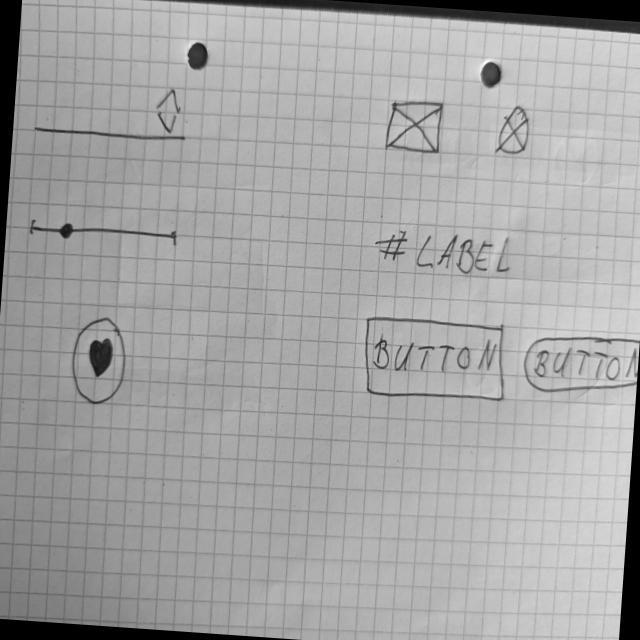 #LABEL
BUTTON BUTTON